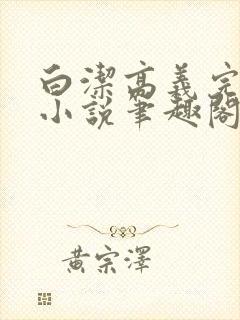 白潔高義完
小說筆趣閣
黃宗澤